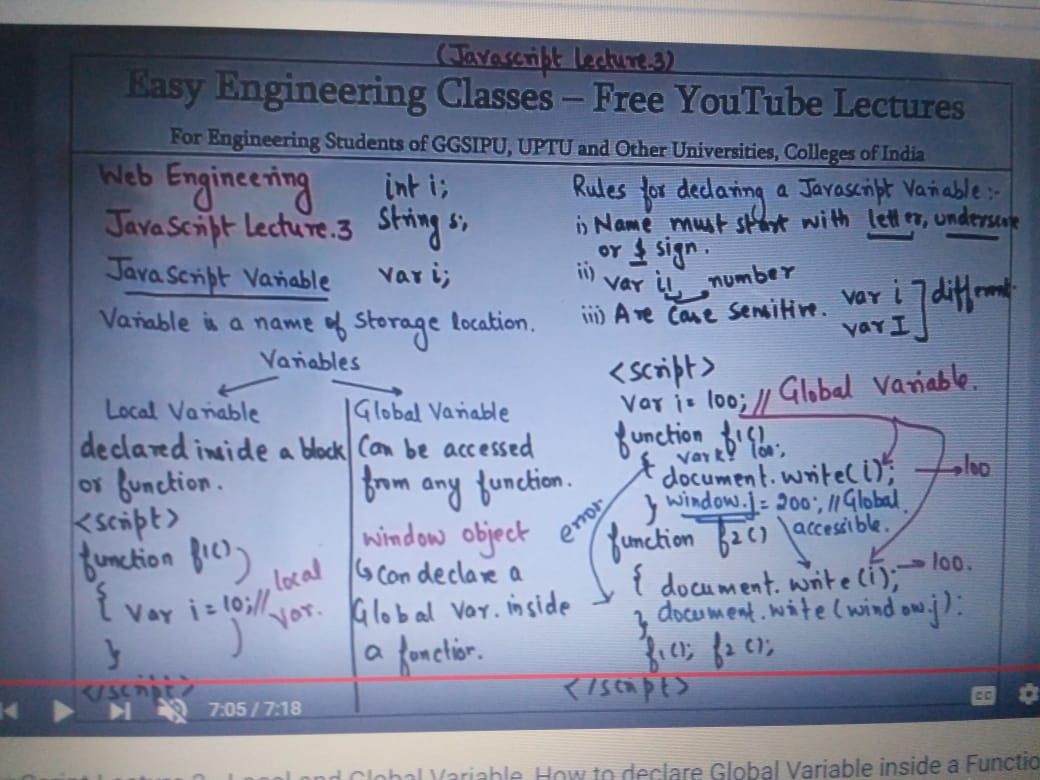 (Javascript Lecture.3)
Easy Engineering Classes – Free YouTube Lectures
For Engineering Students of GGSIPU, UPTU and Other Universities, Colleges of India
Web Engineering
JavaScript Lecture.3
JavaScript Variable
int i;
String s;
var i;
Variable is a name of Storage location.
Variables
Local Variable
declared inside a block
or function.
<script>
function f1()
{ var i = 10; // local
var.
}
</script>
Global Variable
Can be accessed
from any function.
window object
↳ can declare a
Global Var. inside
a function.
Rules for declaring a Javascript Variable :-
i) Name must start with letter, underscore
or $ sign.
ii) var i1, number
iii) Are Case Sensitive. var i
var I ] different
<script>
Var i = 100; // Global Variable.
function f1()
{ var k = 100;
document.write(i); → 100
} window.j = 200; // Global
accessible.
error
function f2()
{ document.write(i); → 100.
document.write(window.j);
}
f1(); f2();
</script>
7:05 / 7:18
CC
Local and Global Variable, How to declare Global Variable inside a Functio